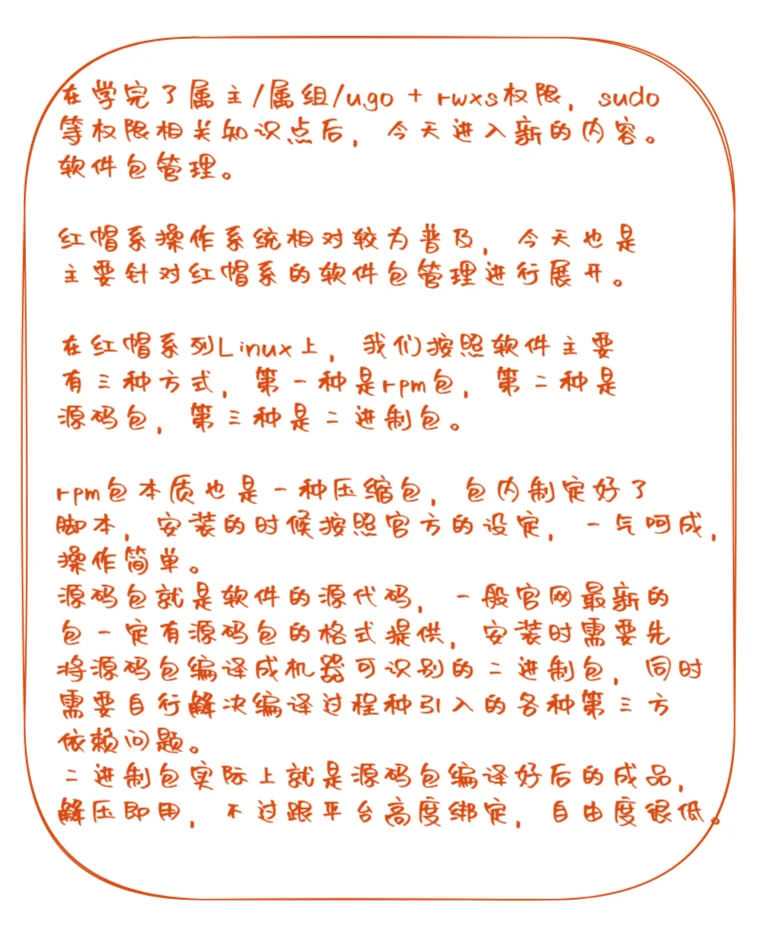 在学完了属主/属组/ugo + rwxs权限，sudo
等权限相关知识点后，今天进入新的内容。
软件包管理。
红帽系操作系统相对较为普及，今天也是
主要针对红帽系的软件包管理进行展开。
在红帽系列Linux上，我们按照软件主要
有三种方式，第一种是rpm包，第二种是
源码包，第三种是二进制包。
rpm包本质也是一种压缩包，包内制定好了
脚本，安装的时候按照官方的设定，一气呵成，
操作简单。
源码包就是软件的源代码，一般官网最新的
包一定有源码包的格式提供，安装时需要先
将源码包编译成机器可识别的二进制包，同时
需要自行解决编译过程种引入的各种第三方
依赖问题。
二进制包实际上就是源码包编译好后的成品，
解压即用，不过跟平台高度绑定，自由度很低。